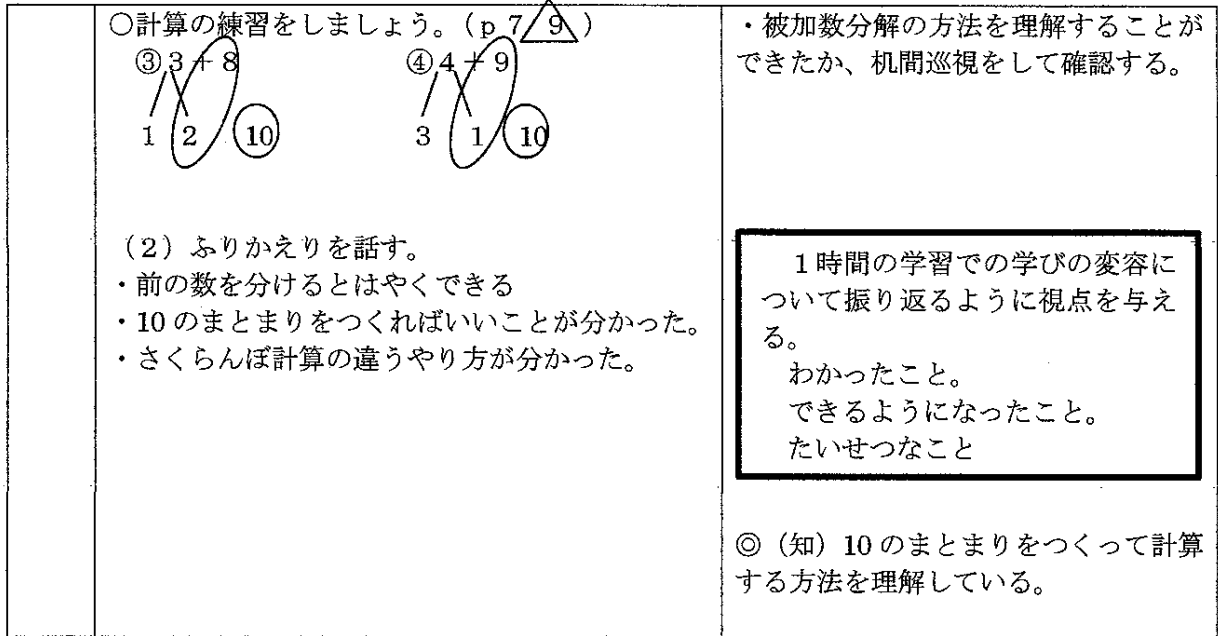 ○計算の練習をしましょう。(p 7 9)
③3+8
④4+9
1 2 10
3 1 10
(2)ふりかえりを話す。
・前の数を分けるとはやくできる
・10 のまとまりをつくればいいことが分かった。
・さくらんぼ計算の違うやり方が分かった。
・被加数分解の方法を理解することが
できたか、机間巡視をして確認する。
1時間の学習での学びの変容に
ついて振り返るように視点を与え
る。
わかったこと。
できるようになったこと。
たいせつなこと
◎(知)10 のまとまりをつくって計算
する方法を理解している。